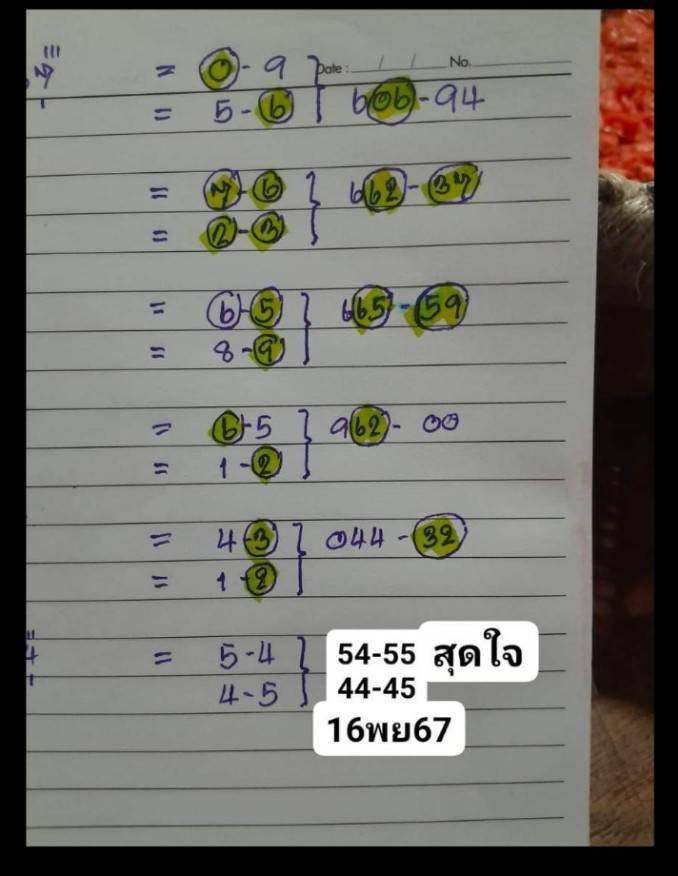 = 0 - 9 Date : / / No.
= 5 - 6 606 - 94
= 7 - 6 662 - 37
= 2 - 3
= 6 - 5 665 - 59
= 8 - 9
= 6 - 5 962 - 00
= 1 - 2
= 4 - 3 044 - 32
= 1 - 2
= 5 - 4 54-55 สุดใจ
4 - 5 44-45
16พย67